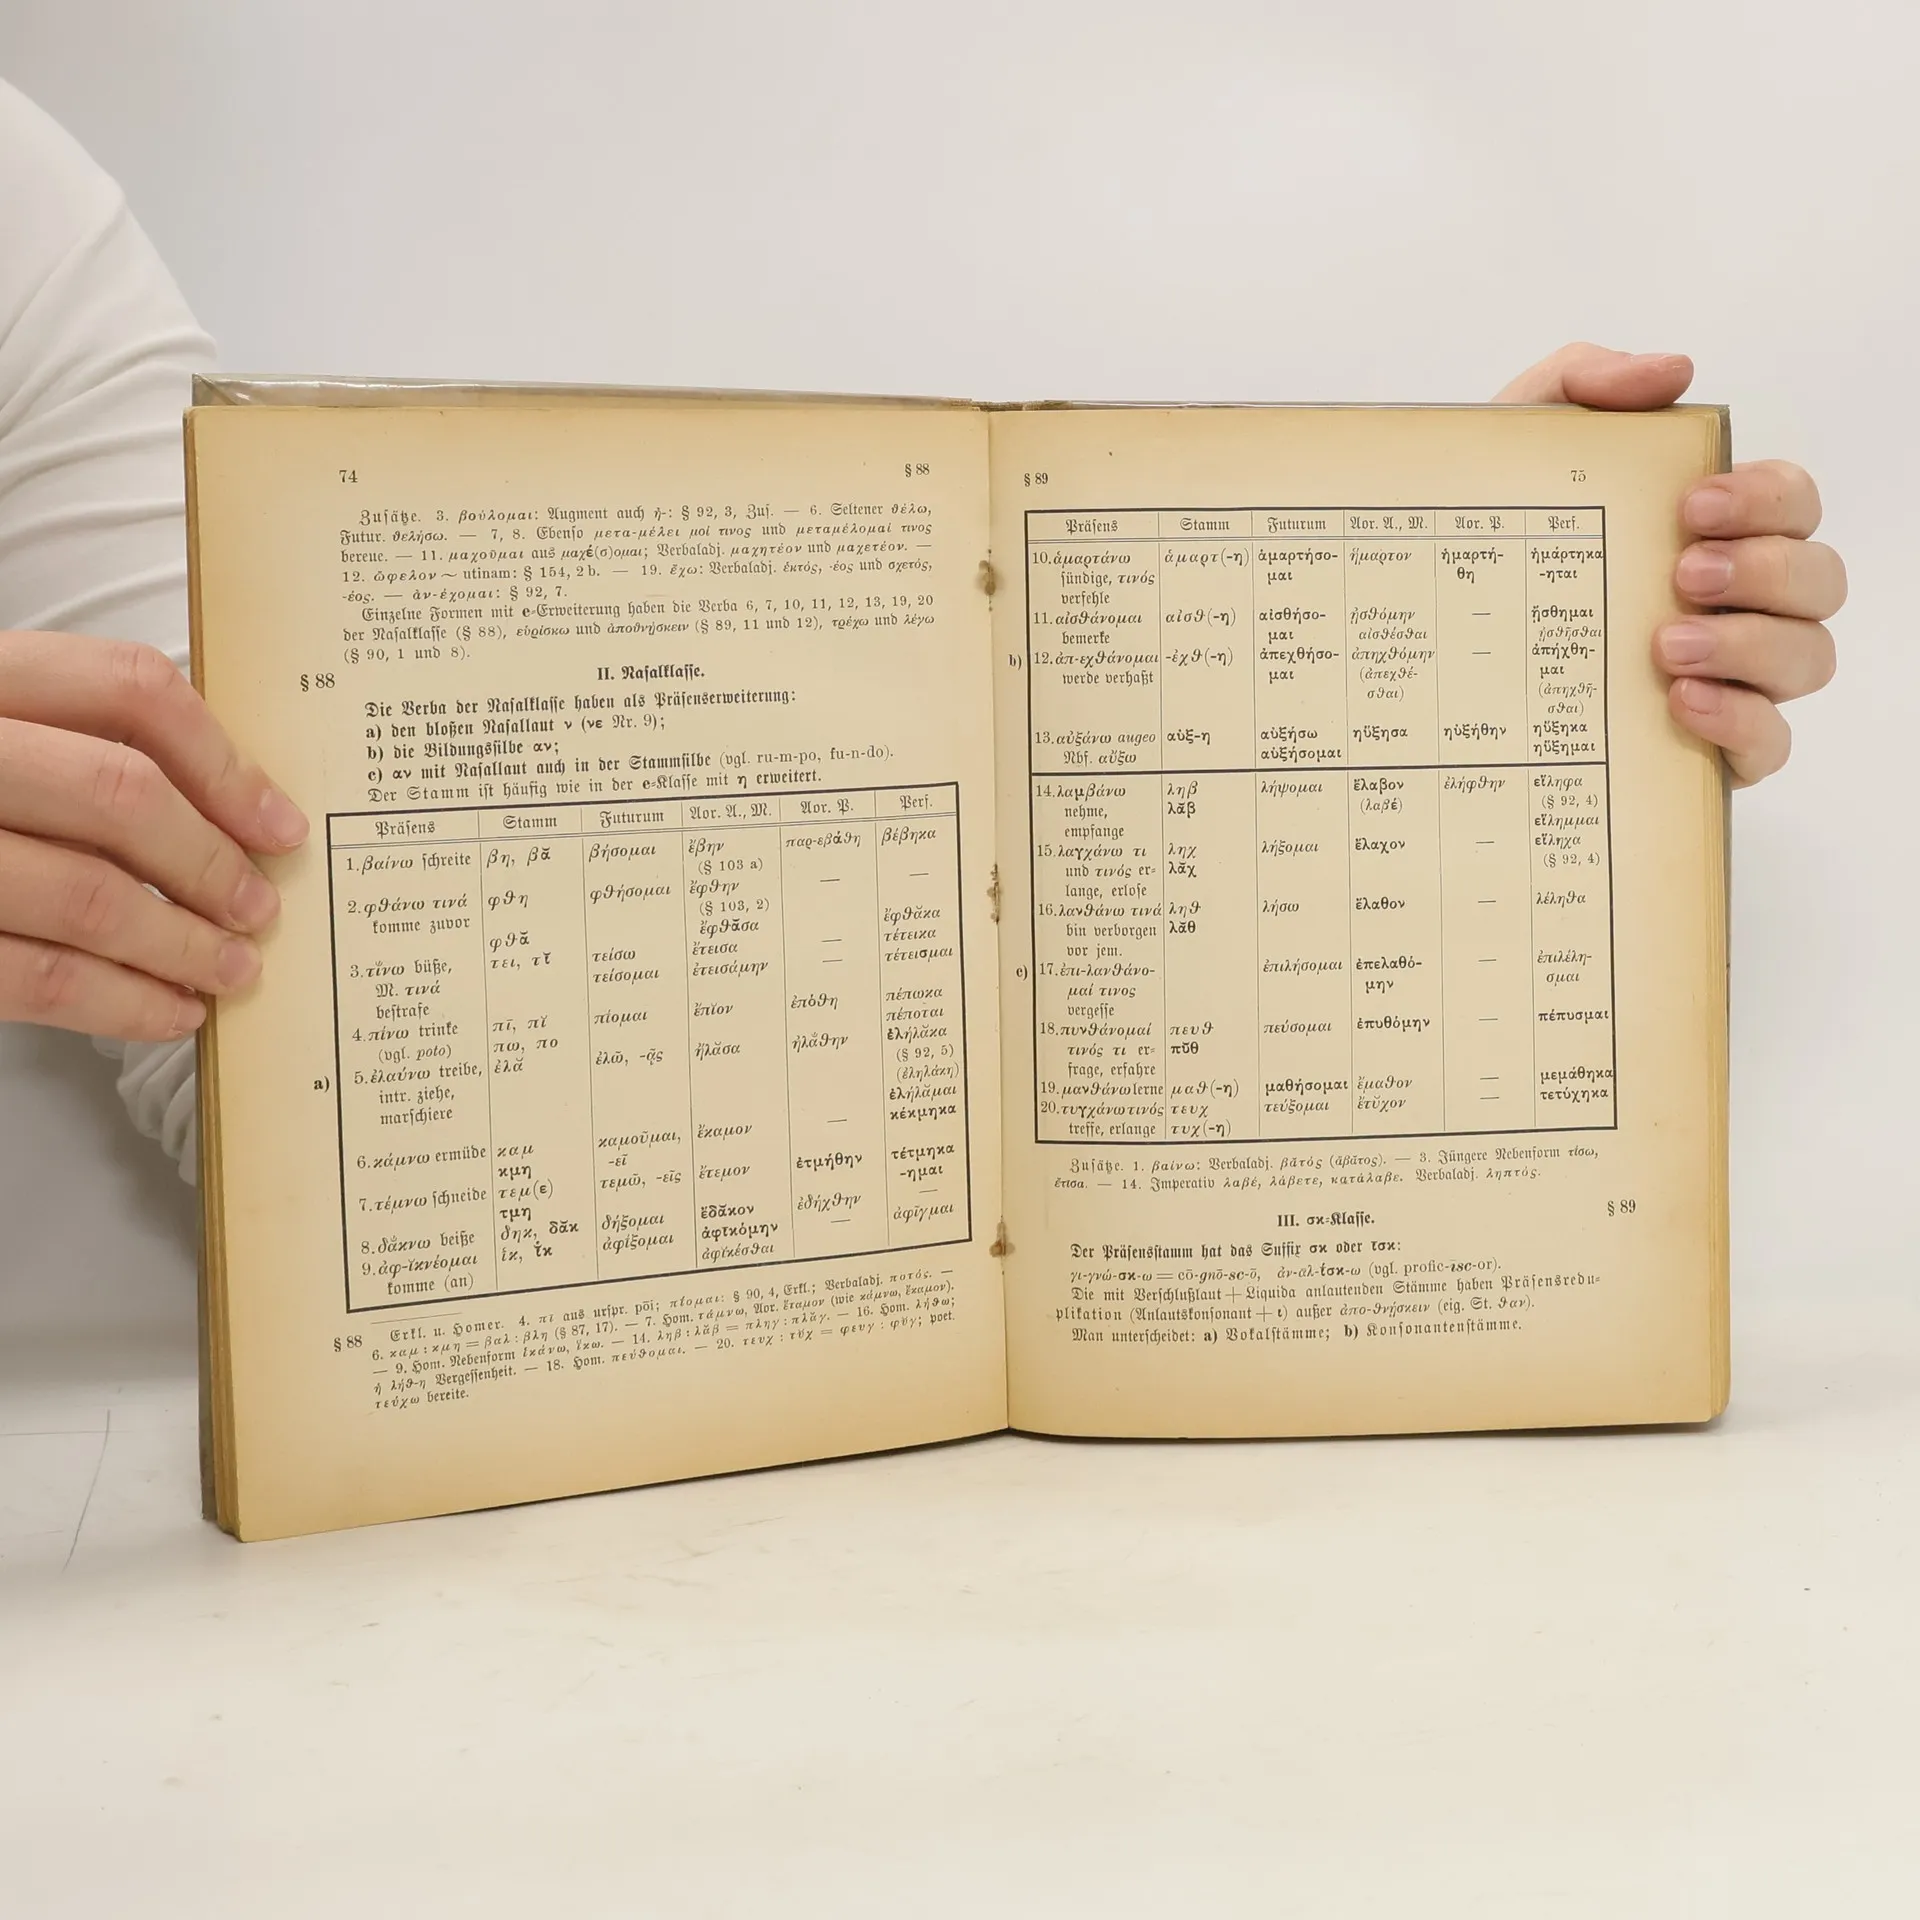 74
§ 88
Zusätze. 3. βούλομαι: Augment auch ἠ-: § 92, 3, Zus. — 6. Seltener θέλω,
Futur. θελήσω. — 7, 8. Ebenso μετα-μέλει μοί τινος und μεταμέλομαί τινος
bereue. — 11. μαχοῦμαι aus μαχέ(σ)ομαι; Verbaladj. μαχητέον und μαχετέον. —
12. ὤφελον ~ utinam: § 154, 2 b. — 19. ἔχω: Verbaladj. ἑκτός, -έος und σχετός,
-έος. — ἀν-έχομαι: § 92, 7.
Einzelne Formen mit e-Erweiterung haben die Verba 6, 7, 10, 11, 12, 13, 19, 20
der Nasalklasse (§ 88), εὑρίσκω und ἀποθνῄσκειν (§ 89, 11 und 12), τρέχω und λέγω
(§ 90, 1 und 8).
§ 88
II. Nasalklasse.
Die Verba der Nasalklasse haben als Präsenserweiterung:
a) den bloßen Nasallaut ν (νε Nr. 9);
b) die Bildungssilbe αν;
c) αν mit Nasallaut auch in der Stammsilbe (vgl. ru-m-po, fu-n-do).
Der Stamm ist häufig wie in der e-Klasse mit η erweitert.
Präsens Stamm Futurum Aor. A., M. Aor. P. Perf.
a)
1. βαίνω schreite βη, βᾰ βήσομαι ἔβην παρ-εβάθη βέβηκα
(§ 103 a)
2. φθάνω τινά φθη φθήσομαι ἔφθην — —
komme zuvor (§ 103, 2)
φθᾰ ἔφθᾰσα ἔφθᾰκα
3. τίνω büße, τει, τῐ τείσω ἔτεισα — τέτεικα
M. τινά τείσομαι ἐτεισάμην — τέτεισμαι
bestrafe
4. πίνω trinke πῑ, πῐ πίομαι ἔπιον ἐπόθη πέπωκα
(vgl. poto) πω, πο πέποται
5. ἐλαύνω treibe, ἐλᾰ ἐλῶ, -ᾷς ἤλᾰσα ἠλάθην ἐλήλᾰκα
intr. ziehe, (§ 92, 5)
marschiere (ἐληλάκη)
ἐλήλᾰμαι
6. κάμνω ermüde καμ καμοῦμαι, ἔκαμον — κέκμηκα
κμη -εῖ
7. τέμνω schneide τεμ(ε) τεμῶ, -εῖς ἔτεμον ἐτμήθην τέτμηκα
τμη -ημαι
8. δάκνω beiße δηκ, δᾰκ δήξομαι ἔδᾰκον ἐδήχθην —
9. ἀφ-ικνέομαι ἱκ, ῐ̔κ ἀφίξομαι ἀφικόμην — ἀφῖγμαι
komme (an) ἀφικέσθαι
§ 88 Erkl. u. Homer. 4. πι aus urspr. pōi; πίομαι: § 90, 4, Erkl.; Verbaladj. ποτός. —
6. καμ : κμη = βαλ : βλη (§ 87, 17). — 7. Hom. τάμνω, Aor. ἔταμον (wie κάμνω, ἔκαμον).
— 9. Hom. Nebenform ἱκάνω, ἵκω. — 14. ληβ : λᾰβ = πληγ : πλᾰγ. — 16. Hom. λήθω;
ἡ λήθ-η Vergessenheit. — 18. Hom. πεύθομαι. — 20. τευχ : τῠχ = φευγ : φῠγ; poet.
τεύχω bereite.
§ 89
75
Präsens Stamm Futurum Aor. A., M. Aor. P. Perf.
10. ἁμαρτάνω ἁμαρτ(-η) ἁμαρτήσο- ἥμαρτον ἡμαρτή- ἡμάρτηκα
sündige, τινός μαι θη -ηται
verfehle
11. αἰσθάνομαι αἰσθ(-η) αἰσθήσο- ᾐσθόμην — ᾔσθημαι
bemerke μαι αἰσθέσθαι ᾐσθῆσθαι
b)
12. ἀπ-εχθάνομαι -ἐχθ(-η) ἀπεχθήσο- ἀπηχθόμην — ἀπήχθη-
werde verhaßt μαι (ἀπεχθέ- μαι
σθαι) (ἀπηχθῆ-
σθαι)
13. αὐξάνω augeo αὐξ-η αὐξήσω ηὔξησα ηὐξήθην ηὔξηκα
Nbf. αὔξω αὐξήσομαι ηὔξημαι
14. λαμβάνω ληβ λήψομαι ἔλαβον ἐλήφθην εἴληφα
nehme, λᾰβ (λαβέ) (§ 92, 4)
empfange εἴλημμαι
15. λαγχάνω τι ληχ λήξομαι ἔλαχον — εἴληχα
und τινός er- λᾰχ (§ 92, 4)
lange, erlose
16. λανθάνω τινά ληθ λήσω ἔλαθον — λέληθα
bin verborgen λᾰθ
vor jem.
c)
17. ἐπι-λανθάνο- ἐπιλήσομαι ἐπελαθό- — ἐπιλέλη-
μαί τινος μην σμαι
vergesse
18. πυνθάνομαί πευθ πεύσομαι ἐπυθόμην — πέπυσμαι
τινός τι er- πῠθ
frage, erfahre
19. μανθάνω lerne μαθ(-η) μαθήσομαι ἔμαθον — μεμάθηκα
20. τυγχάνω τινός τευχ τεύξομαι ἔτῠχον — τετύχηκα
treffe, erlange τυχ(-η)
Zusätze. 1. βαίνω: Verbaladj. βᾰτός (ἄβᾰτος). — 3. Jüngere Nebenform τίσω,
ἔτισα. — 14. Imperativ λαβέ, λάβετε, κατάλαβε. Verbaladj. ληπτός.
§ 89
III. σκ-Klasse.
Der Präsensstamm hat das Suffix σκ oder ισκ:
γι-γνώ-σκ-ω = cō-gnō-sc-ō, ἀν-ᾱλ-ίσκ-ω (vgl. profic-isc-or).
Die mit Verschlußlaut + Liquida anlautenden Stämme haben Präsensredu-
plikation (Anlautskonsonant + ι) außer ἀπο-θνῄσκειν (eig. St. θαν).
Man unterscheidet: a) Vokalstämme; b) Konsonantenstämme.